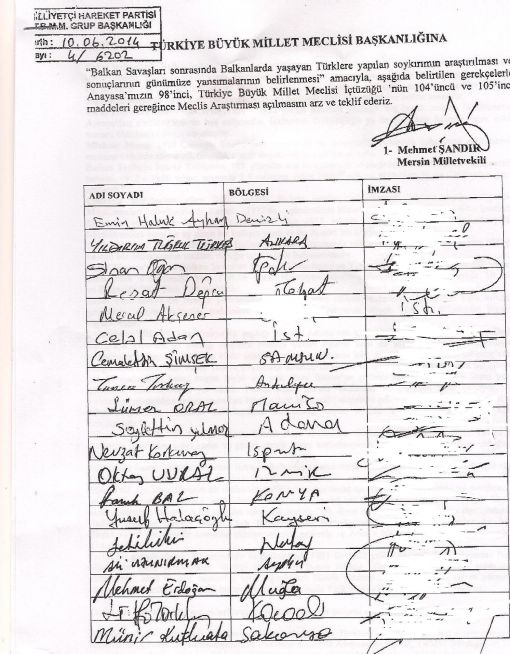 LLİYETÇİ HAREKET PARTİSİ
T.B.M.M. GRUP BAŞKANLIĞI
arih : 10.06.2014
ayı : 4/6202
TÜRKİYE BÜYÜK MİLLET MECLİSİ BAŞKANLIĞINA
"Balkan Savaşları sonrasında Balkanlarda yaşayan Türklere yapılan soykırımın araştırılması ve
sonuçlarının günümüze yansımalarının belirlenmesi" amacıyla, aşağıda belirtilen gerekçelerle
Anayasa'mızın 98'inci, Türkiye Büyük Millet Meclisi İçtüzüğü 'nün 104'üncü ve 105'inc
maddeleri gereğince Meclis Araştırması açılmasını arz ve teklif ederiz.
1- Mehmet ŞANDIR
Mersin Milletvekili
ADI SOYADI BÖLGESİ İMZASI
Emin Haluk Ayhan Denizli
YILDIRIM TUĞRUL TÜRKEŞ ANKARA
Sinan Oğan
Reşat Doğru
Meral Akşener İst.
Celal Adan İst
Cemalettin ŞİMŞEK SAMSUN
Sümer ORAL Manisa
Seyfettin yılmaz Adana
Nevzat Korkmaz Isparta
Oktay VURAL İzmir
Faruk BAL KONYA
Yusuf Halaçoğlu Kayseri
Hatay
Mehmet Erdoğan Muğla
Kocaeli
Münir Kutluata Sakarya